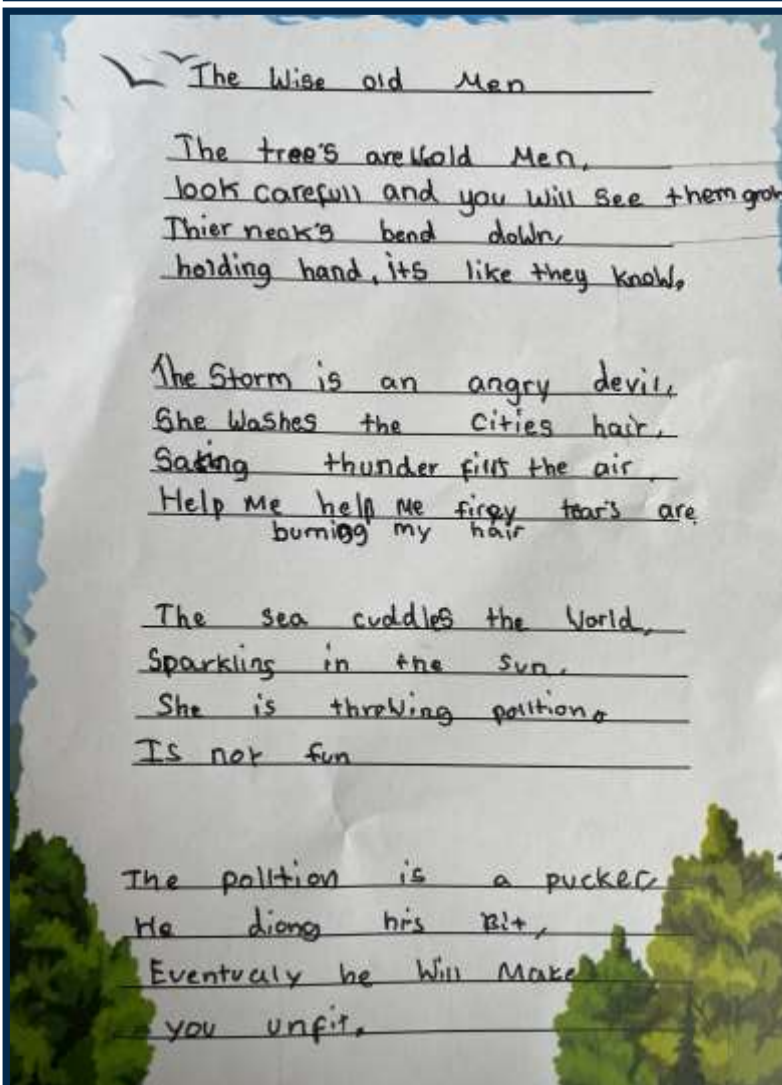 The Wise old Men
The tree's are old Men,
look carefull and you will see them grow
Thier neak's bend down,
holding hand, its like they know,
The Storm is an angry devil,
She Washes the Cities hair,
thunder fills the air.
Help Me help Me firey tear's are
burning my hair
The sea cuddles the World,
Sparkling in the Sun,
She is throwing polltion.
Is not fun
The polltion is a pucker,
He diong his Bit,
Eventualy he Will Make
you unfit.